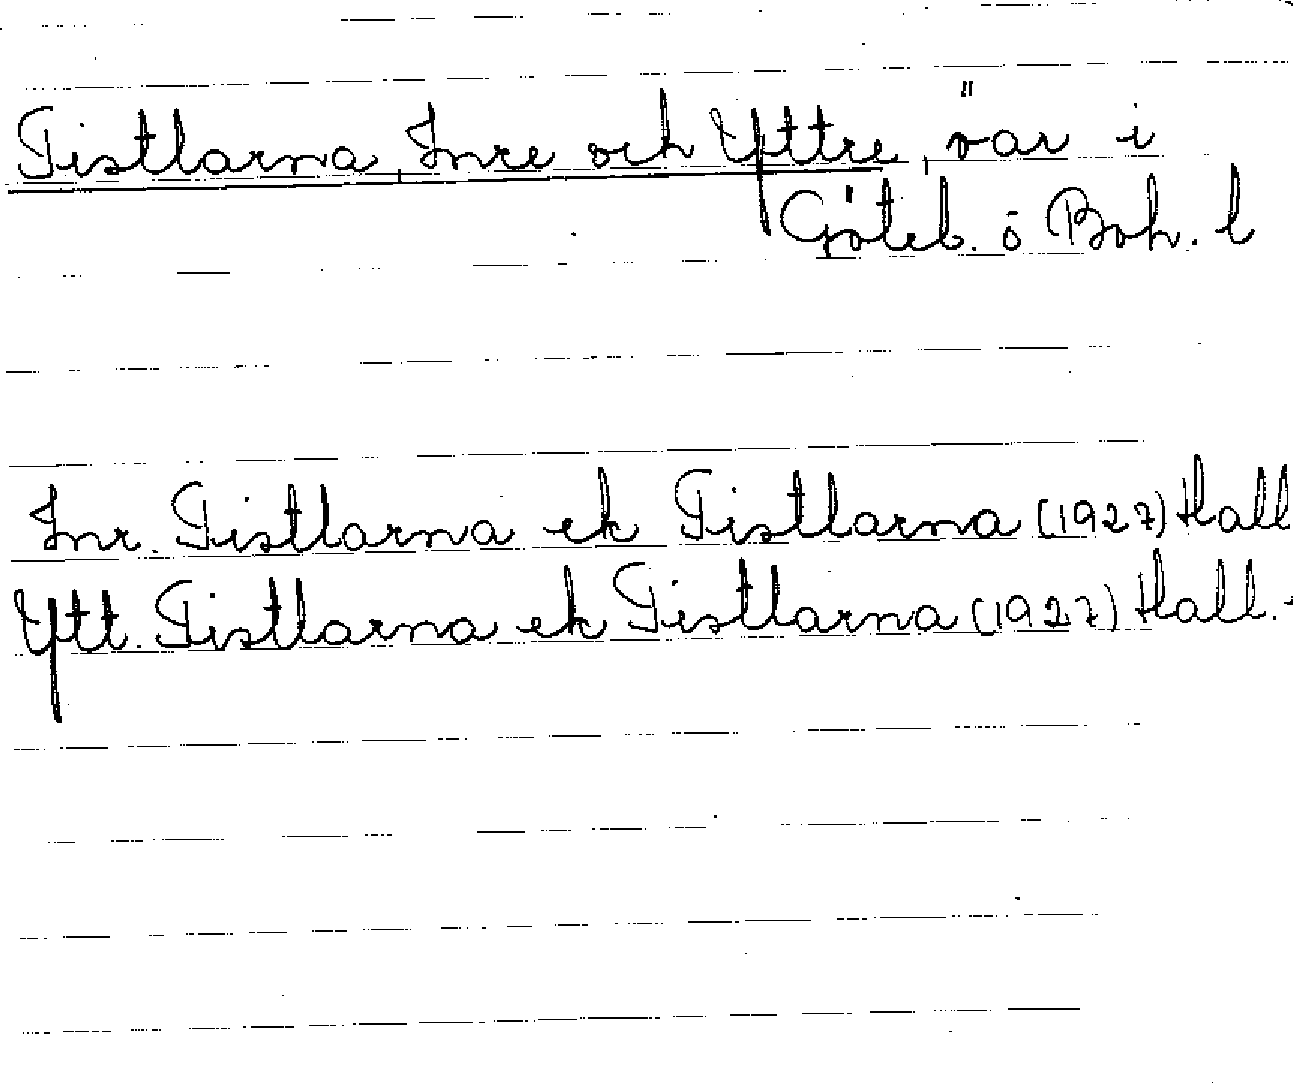 Tistlarna, Inre och Yttre, öar i
Göteb. o Boh. l
Inr. Tistlarna ek Tistlarna (1927) Hall
Ytt. Tistlarna ek Tistlarna (1927) Hall.